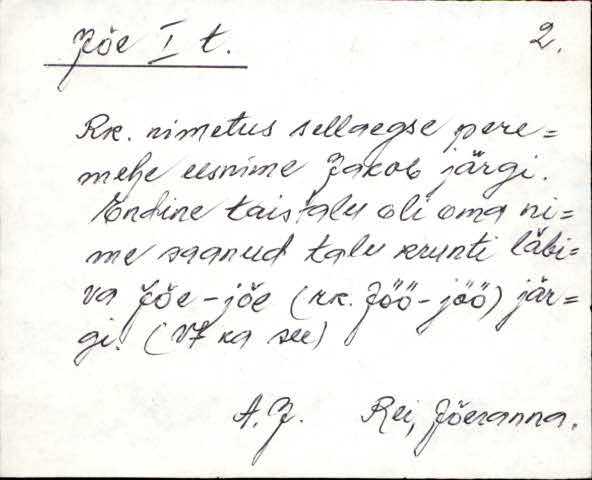 Jõe I t. 2.
Rk. nimetus sellaegse pere=
mehe eesnime Jakob järgi.
Endine taistalu oli oma ni=
me saanud talu krunti läbi=
va Jõe-jõe (rk. Jöö-jöö) jär=
gi. (Vt ka see)
A. J. Rei, Jõeranna.